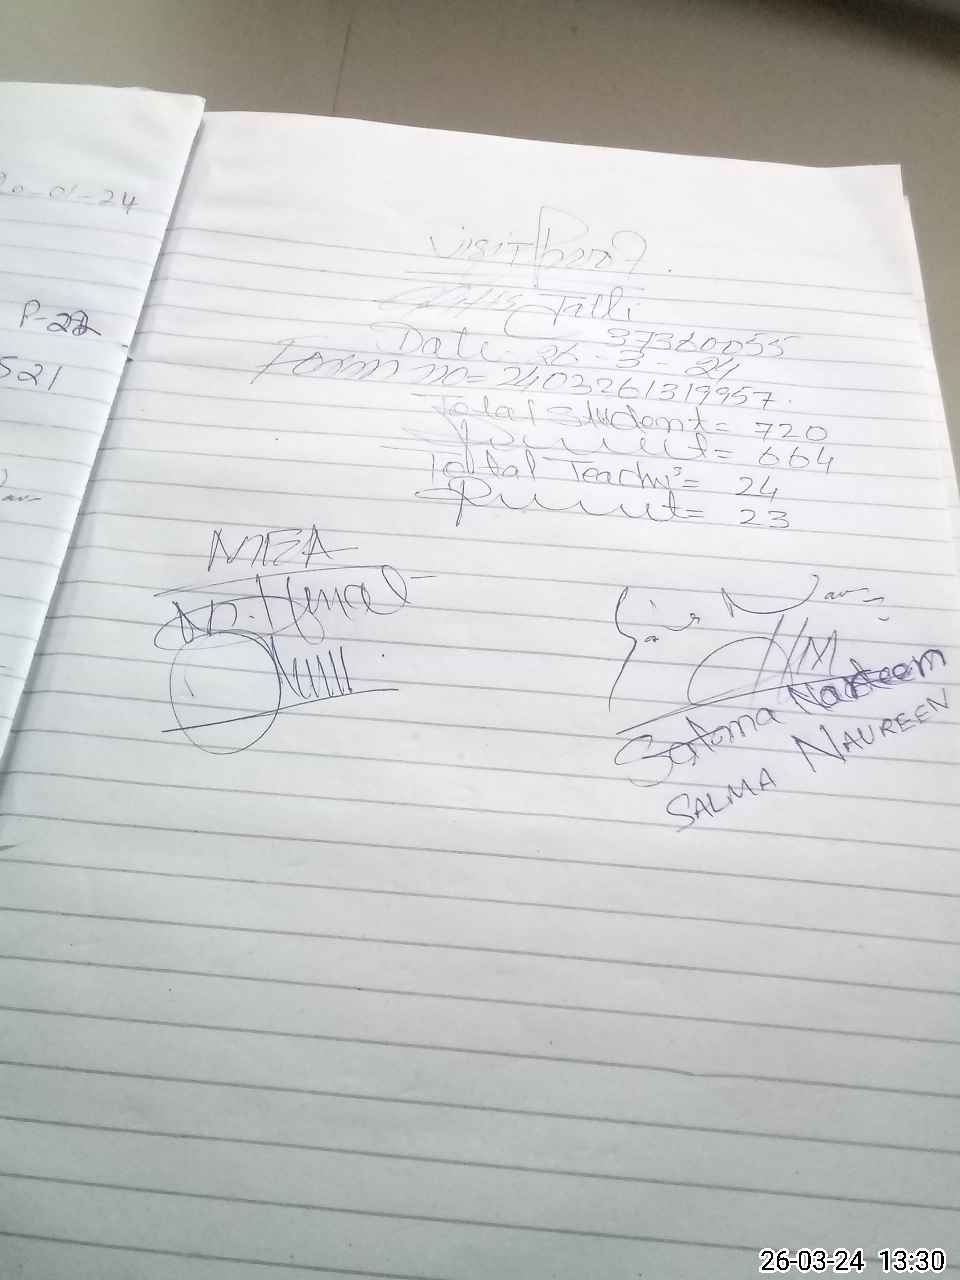 20-01-24
P-22
521
Visit Perf
Jalli
37360055
Date 26-3-24
Form no= 2403261319957.
Total Student= 720
Present= 664
Total Teachers= 24
Present= 23
MEA
HM
Salma Naureen
SALMA NAUREEN
26-03-24 13:30